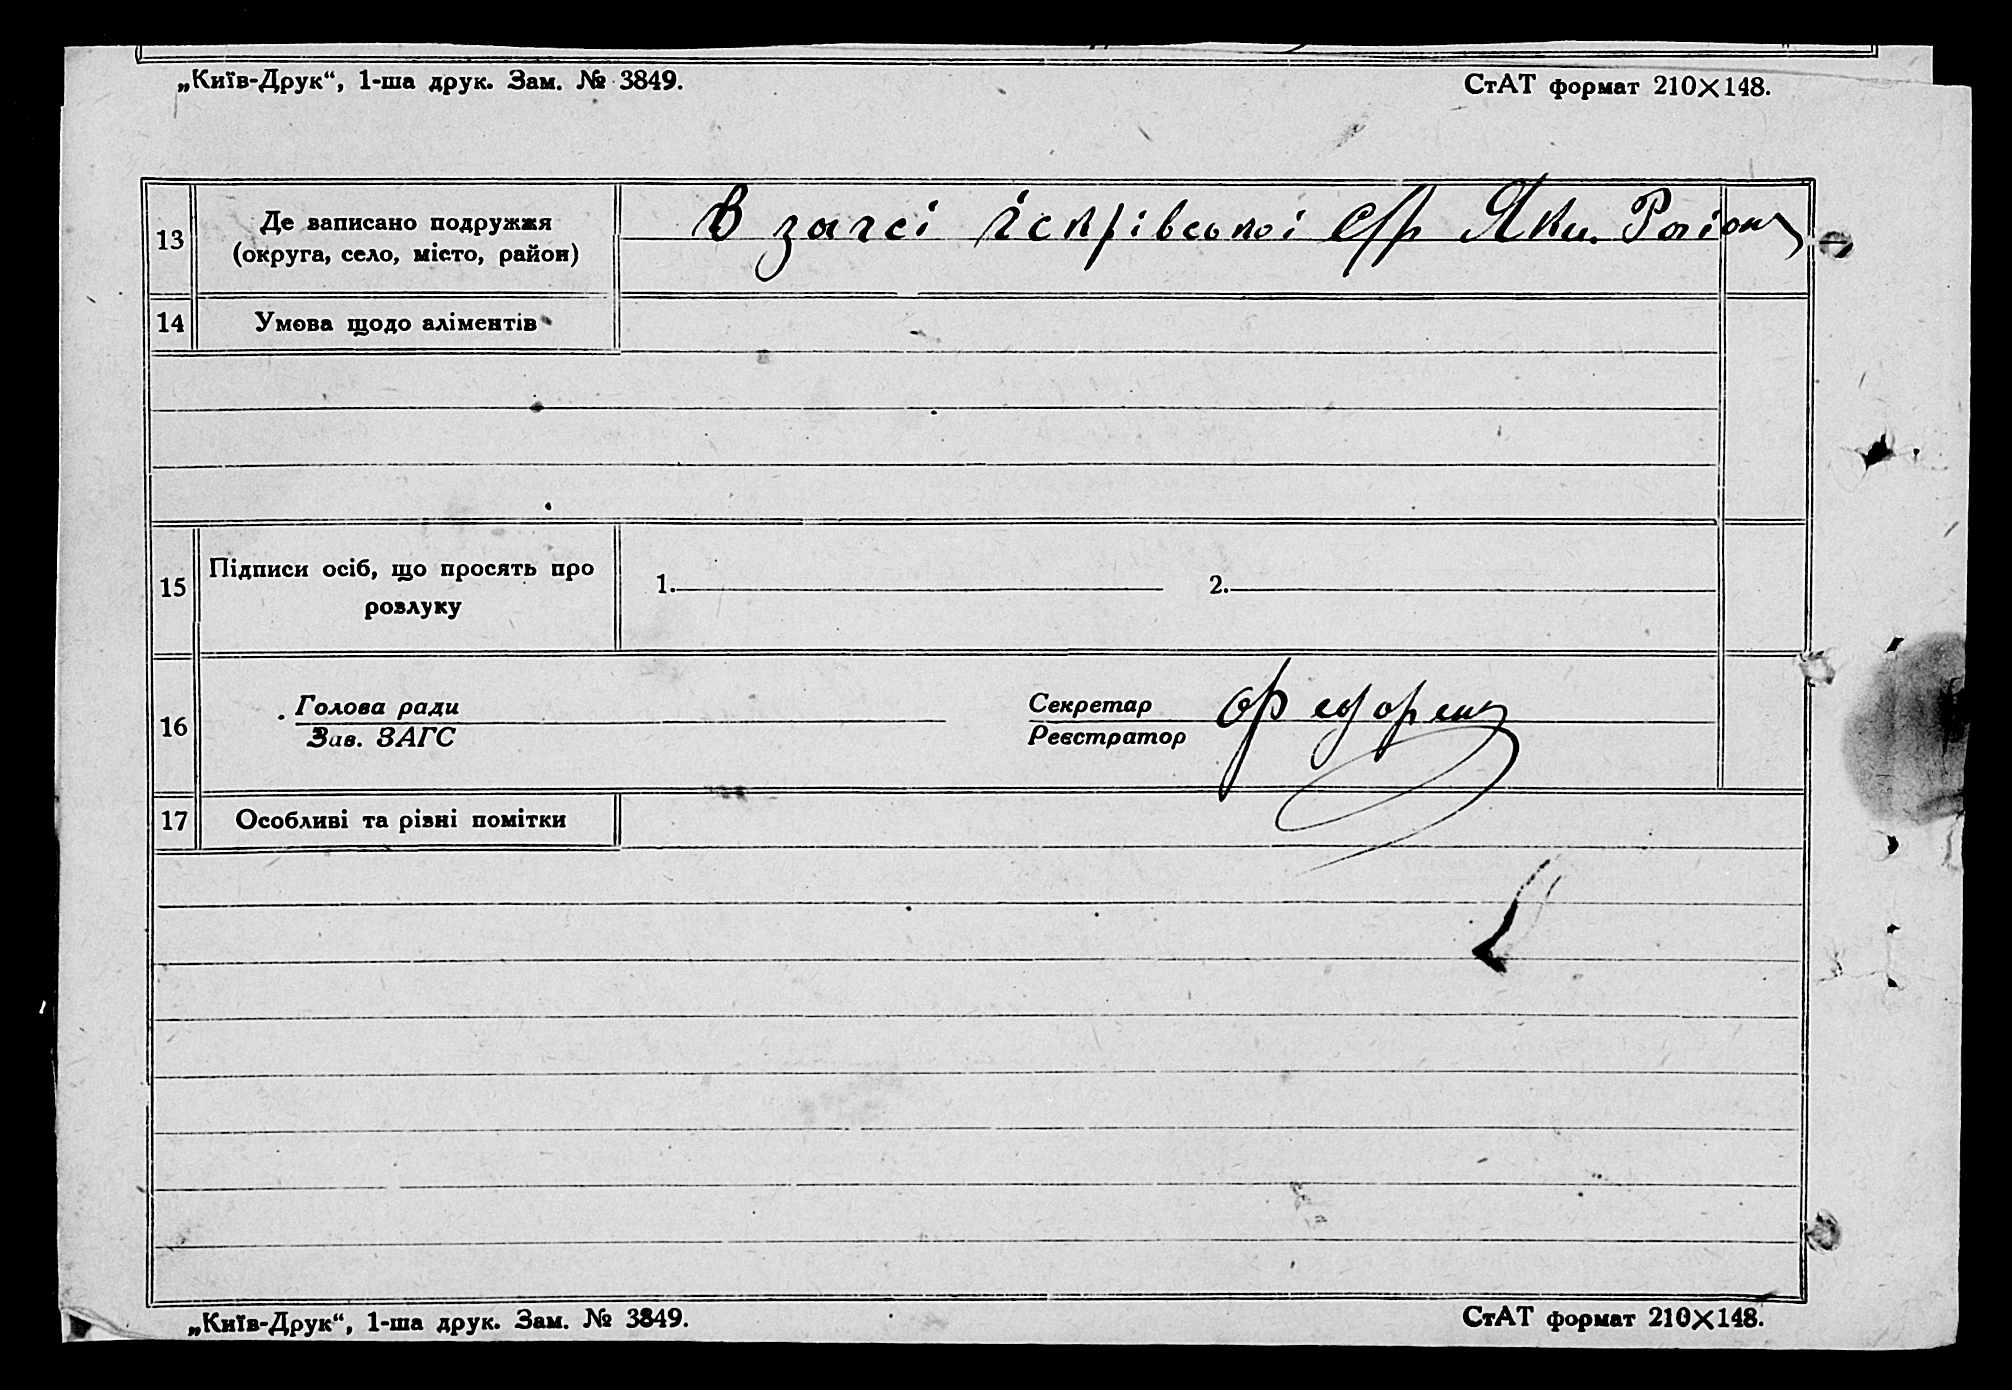 „Київ-Друк“, 1-ша друк. Зам. № 3849.
СтАТ формат 210×148.
13
Де записано подружжя
(округа, село, місто, район)
В загсі іскрівської с/р Яки. Району
14
Умова щодо аліментів
15
Підписи осіб, що просять про
розлуку
1.
2.
16
Голова ради
Зав. ЗАГС
Секретар
Реєстратор
17
Особливі та різні помітки
„Київ-Друк“, 1-ша друк. Зам. № 3849.
СтАТ формат 210×148.